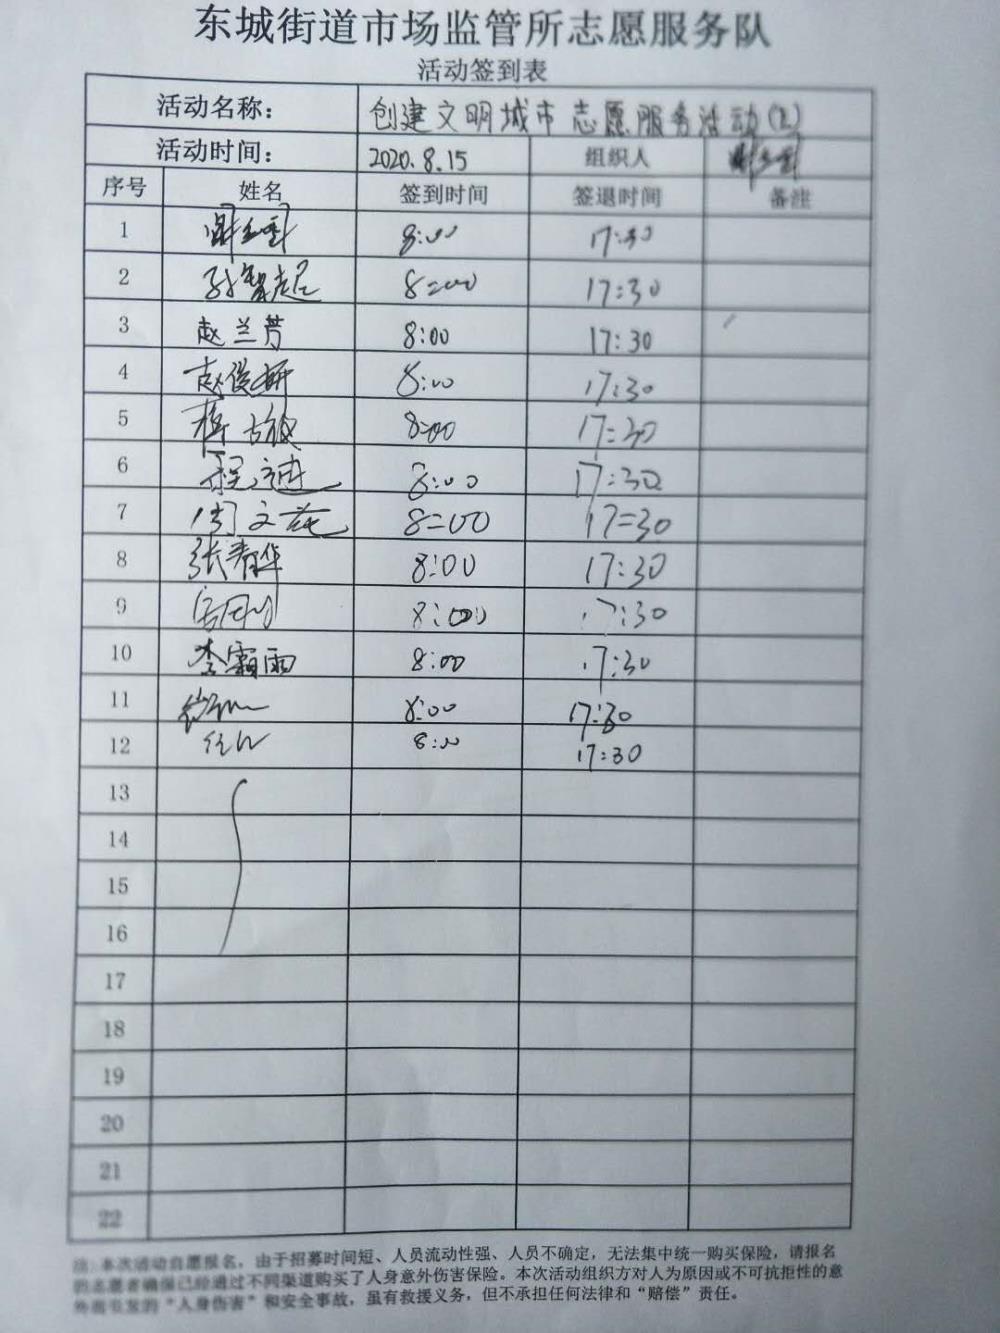 东城街道市场监管所志愿服务队
活动签到表
活动名称： 创建文明城市志愿服务活动
活动时间： 2020.8.15 组织人
序号 姓名 签到时间 签退时间 备注
1 8:00 17:30
2 孙智超 8:00 17:30
3 赵兰芳 8:00 17:30
4 赵俊妍 8:00 17:30
5 8:00 17:30
6 程 8:00 17:30
7 周文 8:00 17:30
8 张春华 8:00 17:30
9 8:00 17:30
10 李霸雨 8:00 17:30
11 8:00 17:30
12 8:00 17:30
13
14
15
16
17
18
19
20
21
22
注：本次活动自愿报名，由于招募时间短、人员流动性强、人员不确定，无法集中统一购买保险，请报名
的志愿者确保已经通过不同渠道购买了人身意外伤害保险。本次活动组织方对人为原因或不可抗拒性的意
外而引发的“人身伤害”和安全事故，虽有救援义务，但不承担任何法律和“赔偿”责任。